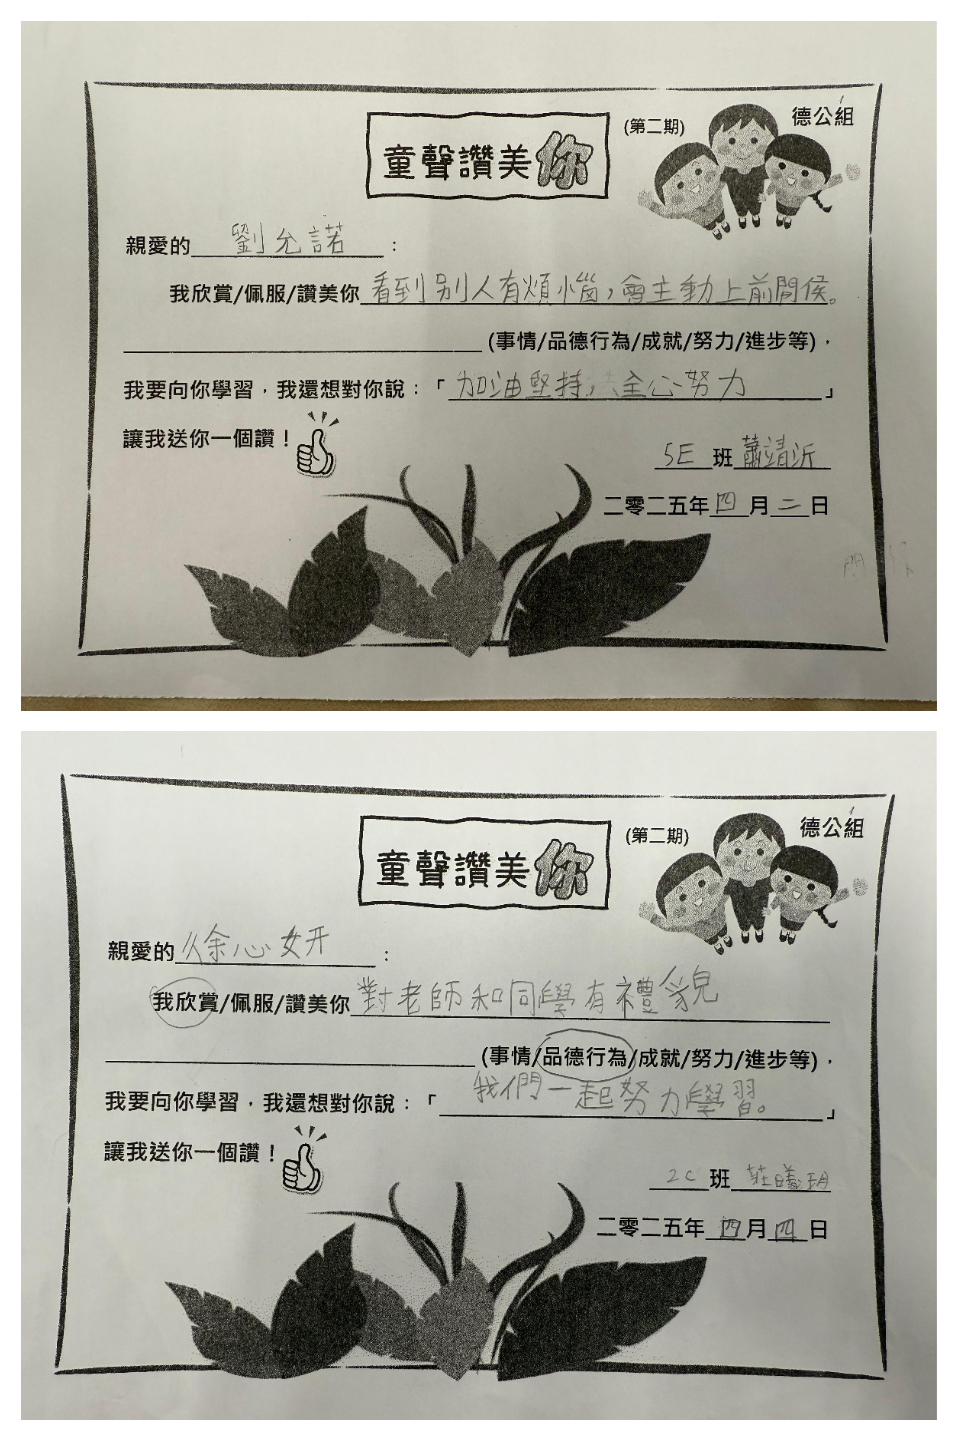 童聲讚美你
(第二期)
德公組
親愛的劉允諾：
我欣賞/佩服/讚美你看到別人有煩惱，會主動上前問侯。
(事情/品德行為/成就/努力/進步等)，
我要向你學習，我還想對你說：「加油堅持，全心努力」
讓我送你一個讚！
5E班蕭靖沂
二零二五年四月二日
問
童聲讚美你
(第二期)
德公組
親愛的徐心妍：
我欣賞/佩服/讚美你對老師和同學有禮貌
(事情/品德行為/成就/努力/進步等)，
我要向你學習，我還想對你說：「我們一起努力學習。」
讓我送你一個讚！
2C班莊曦玥
二零二五年四月四日